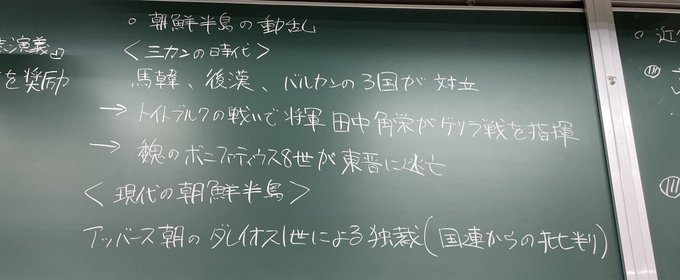 。朝鮮半島の動乱
<三カンの時代>
馬韓、後漢、バルカンの3国が対立
→トイトブルクの戦いで将軍田中角栄がゲリラ戦を指揮
→魏のボニファティウス8世が東晋に逃亡
<現代の朝鮮半島>
アッバース朝のダレイオス1世による独裁(国連からの批判)
演義』
を奨励
。近
(iii)
(iii)